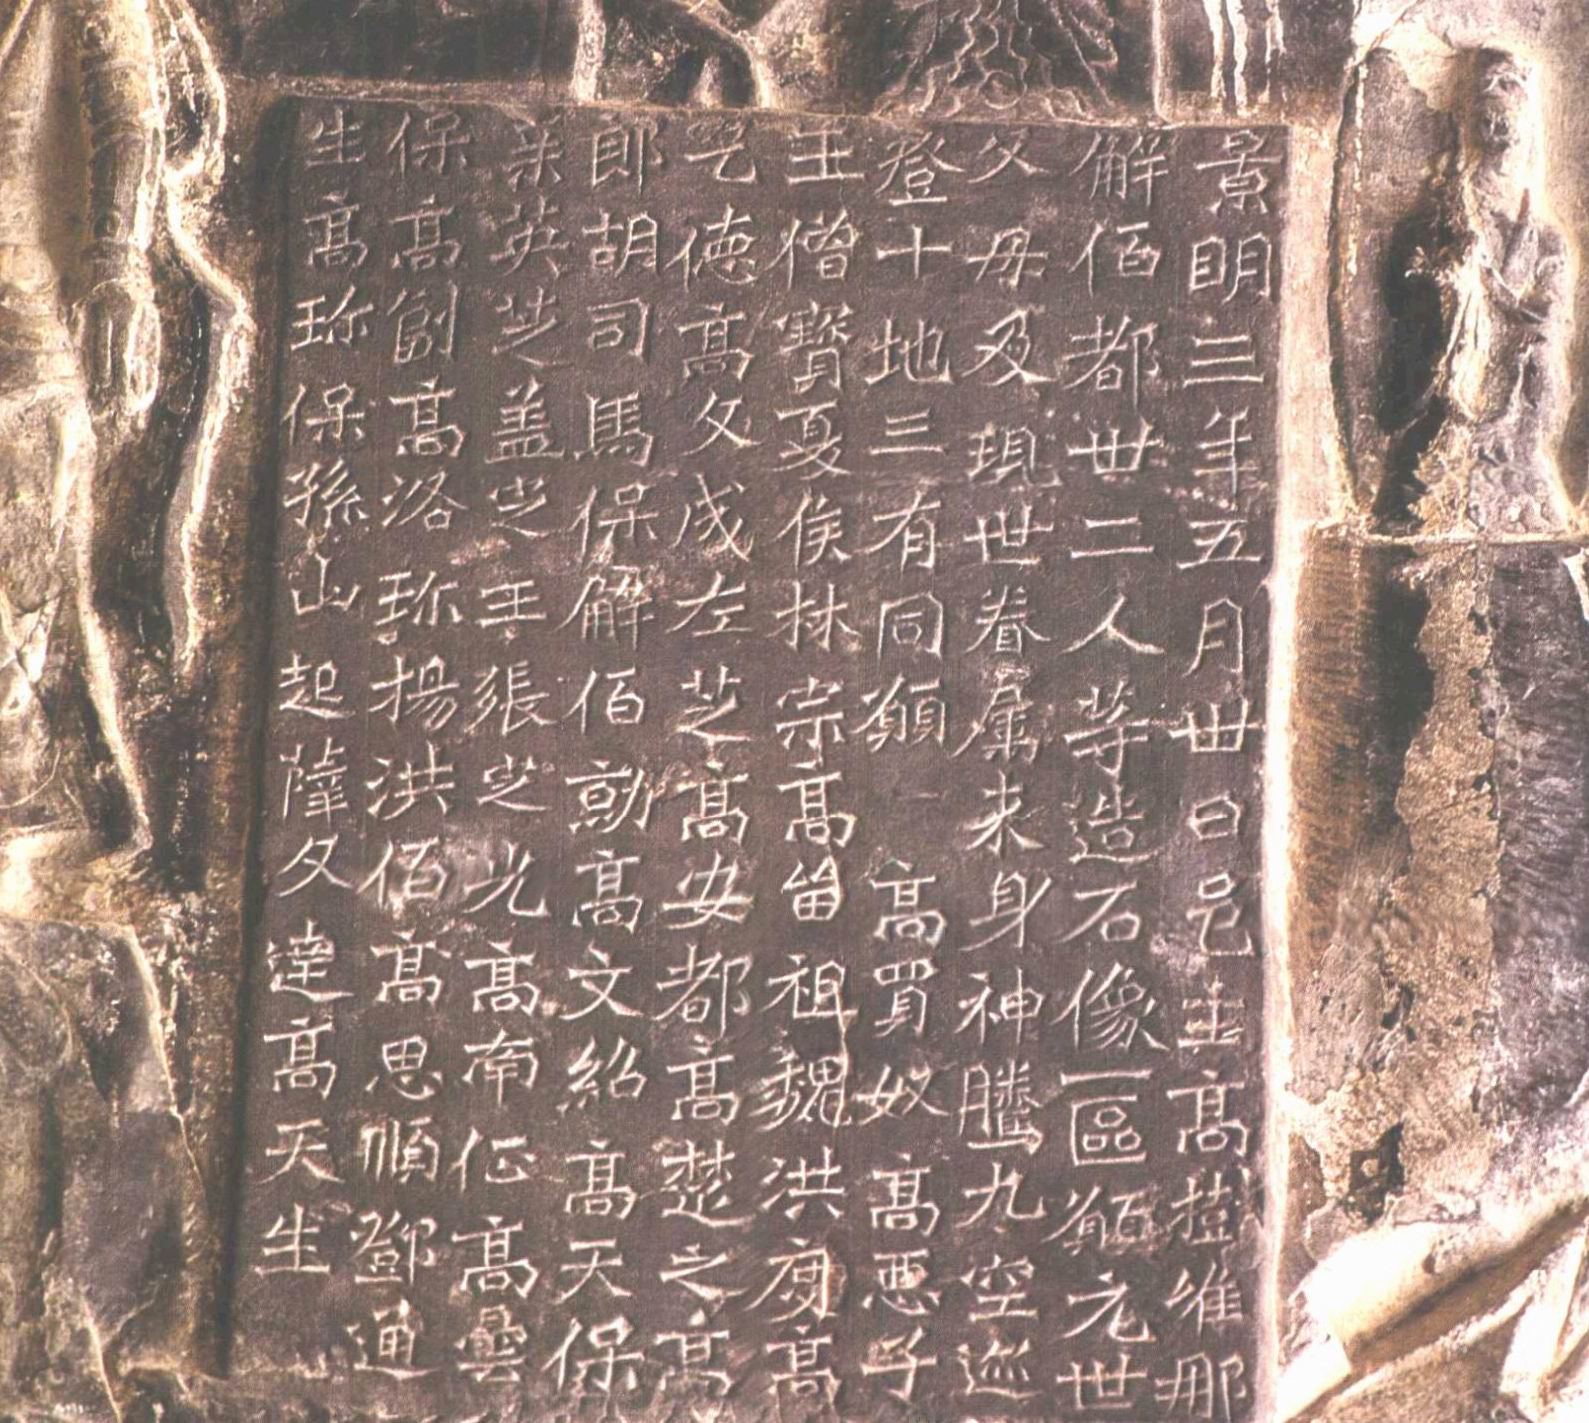 景明三年五月卅日邑主高樹維那
解佰都卅二人等造石像一區願元世
父母及現世眷属来身神騰九空迹
登十地三有同願 高買奴高悪子
王僧寶夏侯林宗高留祖魏洪庻高
乞德高文成左芝高安都高楚之高
郎胡司馬保解佰勍高文紹高天保
英芝盖定王張定光高南征高曇
保高創高洛珎楊洪佰高思順鄧通
生高珎保孫山起薩文達高天生